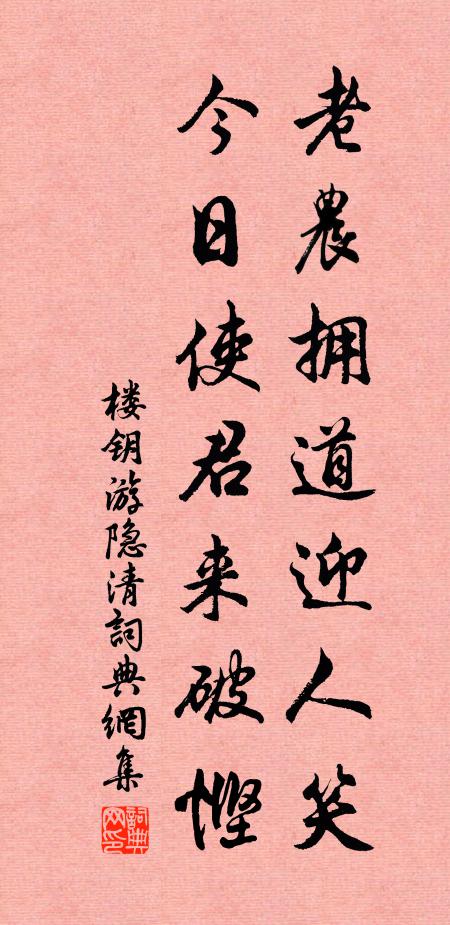 老農拥道迎人笑
今日使君来破悭
楼钥游隐清詞典網集
詞典网印